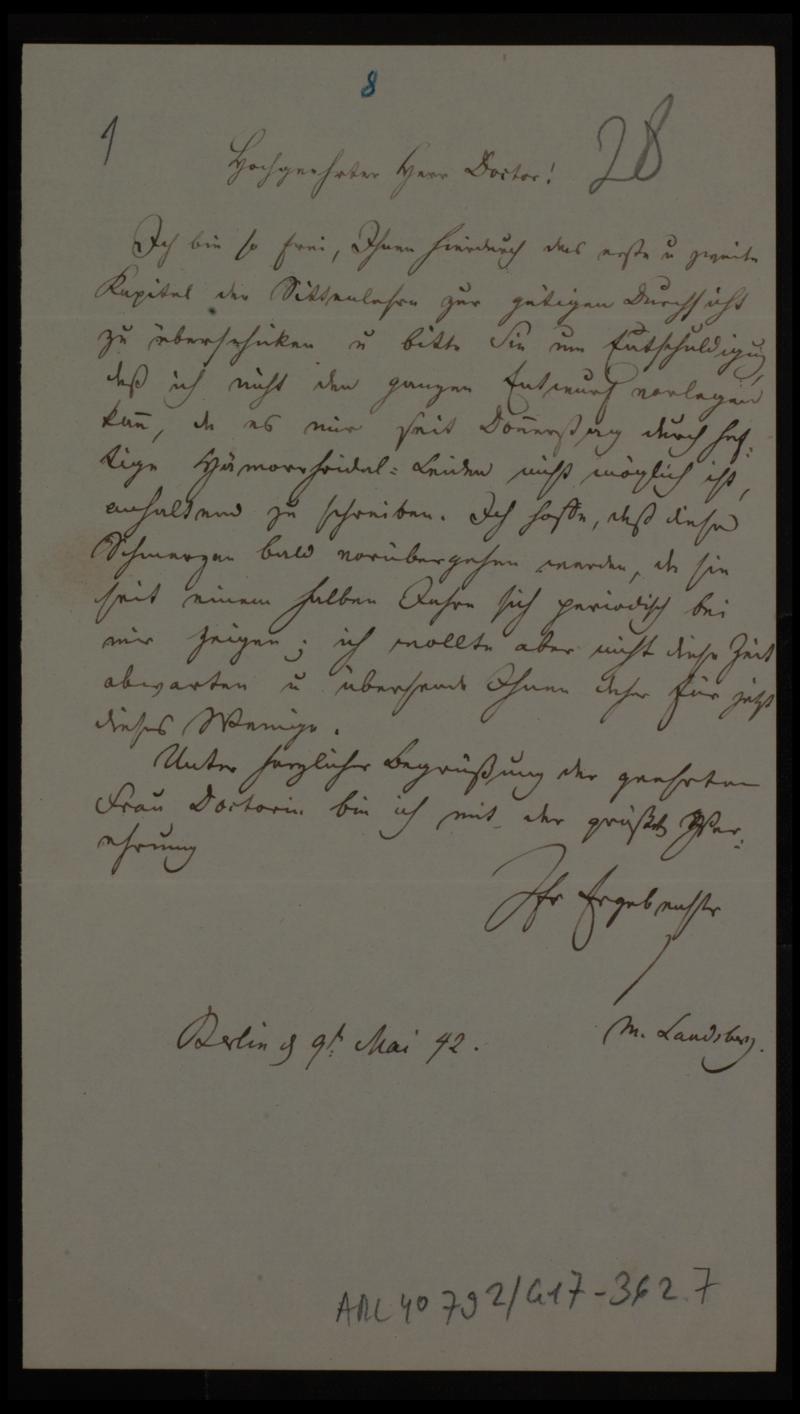 8
1
28
Hochgeehrter Herr Doctor!
Ich bin so frei, Ihnen hierdurch das erste u zweite
Kapitel der Sittenlehre zur gütigen Durchsicht
zu überschicken u bitte Sie um Entschuldigung,
daß ich nicht den ganzen Entwurf vorlegen
kan̅, da es mir seit Don̅erstag durch hef-
tige Hämorrhoidal-Leiden nicht möglich ist,
anhaltend zu schreiben. Ich hoffe, daß diese
Schmerzen bald vorübergehen werden, da sie
seit einem halben Jahre sich periodisch bei
mir zeigen; ich wollte aber nicht diese Zeit
abwarten u übersende Ihnen daher für jetzt
dieses Wenige.
Unter herzlicher Begrüßung der geehrten
Frau Doctorin bin ich mit der größten Ver-
ehrung
Ihr Ergebenster
M. Landsberg.
Berlin d 9t Mai 42.
ARC 40 792/G17-362.7